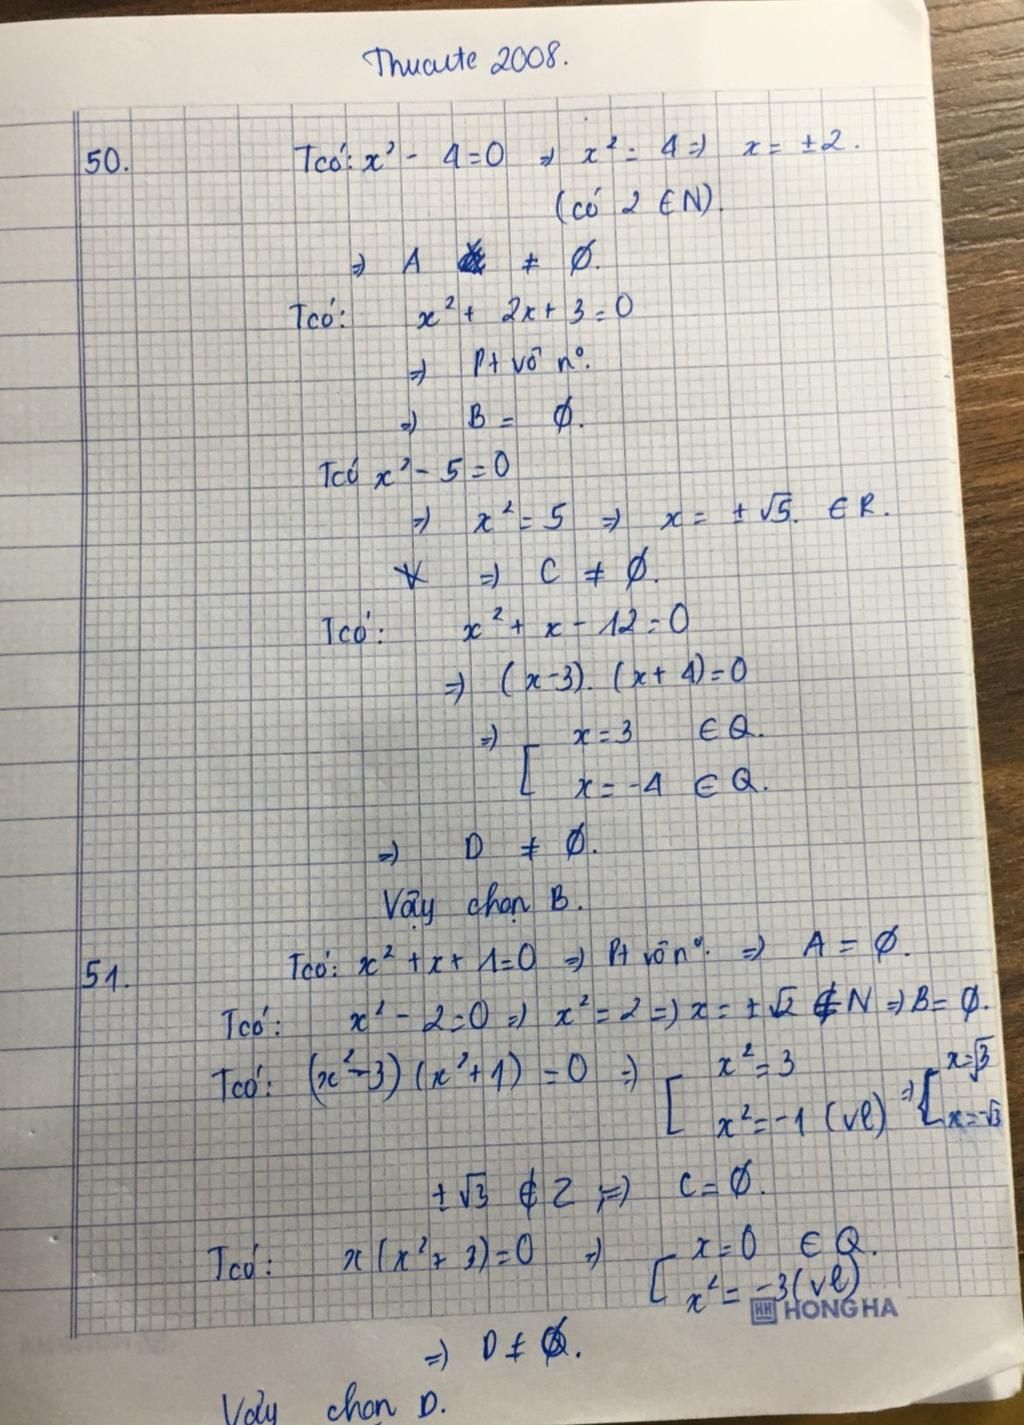 Thuante 2008.
50. Tcó: x² - 4 = 0 => x² = 4 => x = ±2.
(có 2 ∈ N).
=> A ≠ ∅.
Tcó: x² + 2x + 3 = 0
=> Pt vô nº.
=> B = ∅.
Tcó x² - 5 = 0
=> x² = 5 => x = ±√5. ∈ R.
=> C ≠ ∅.
Tcó: x² + x - 12 = 0
=> (x-3). (x+4) = 0
=> [ x = 3 ∈ Q.
x = -4 ∈ Q.
=> D ≠ ∅.
Vậy chọn B.
51. Tcó: x² + x + 1 = 0 => Pt vô nº. => A = ∅.
Tcó: x² - 2 = 0 => x² = 2 => x = ±√2 ∉ N => B = ∅.
Tcó: (x² - 3) (x² + 1) = 0 => [ x² = 3 => [ x = √3
x² = -1 (vl) x = -√3
±√3 ∉ Z => C = ∅.
Tcó: x(x² + 3) = 0 => [ x = 0 ∈ Q.
x² = -3 (vl)
HH HONG HA
=> D ≠ ∅.
Vậy chọn D.